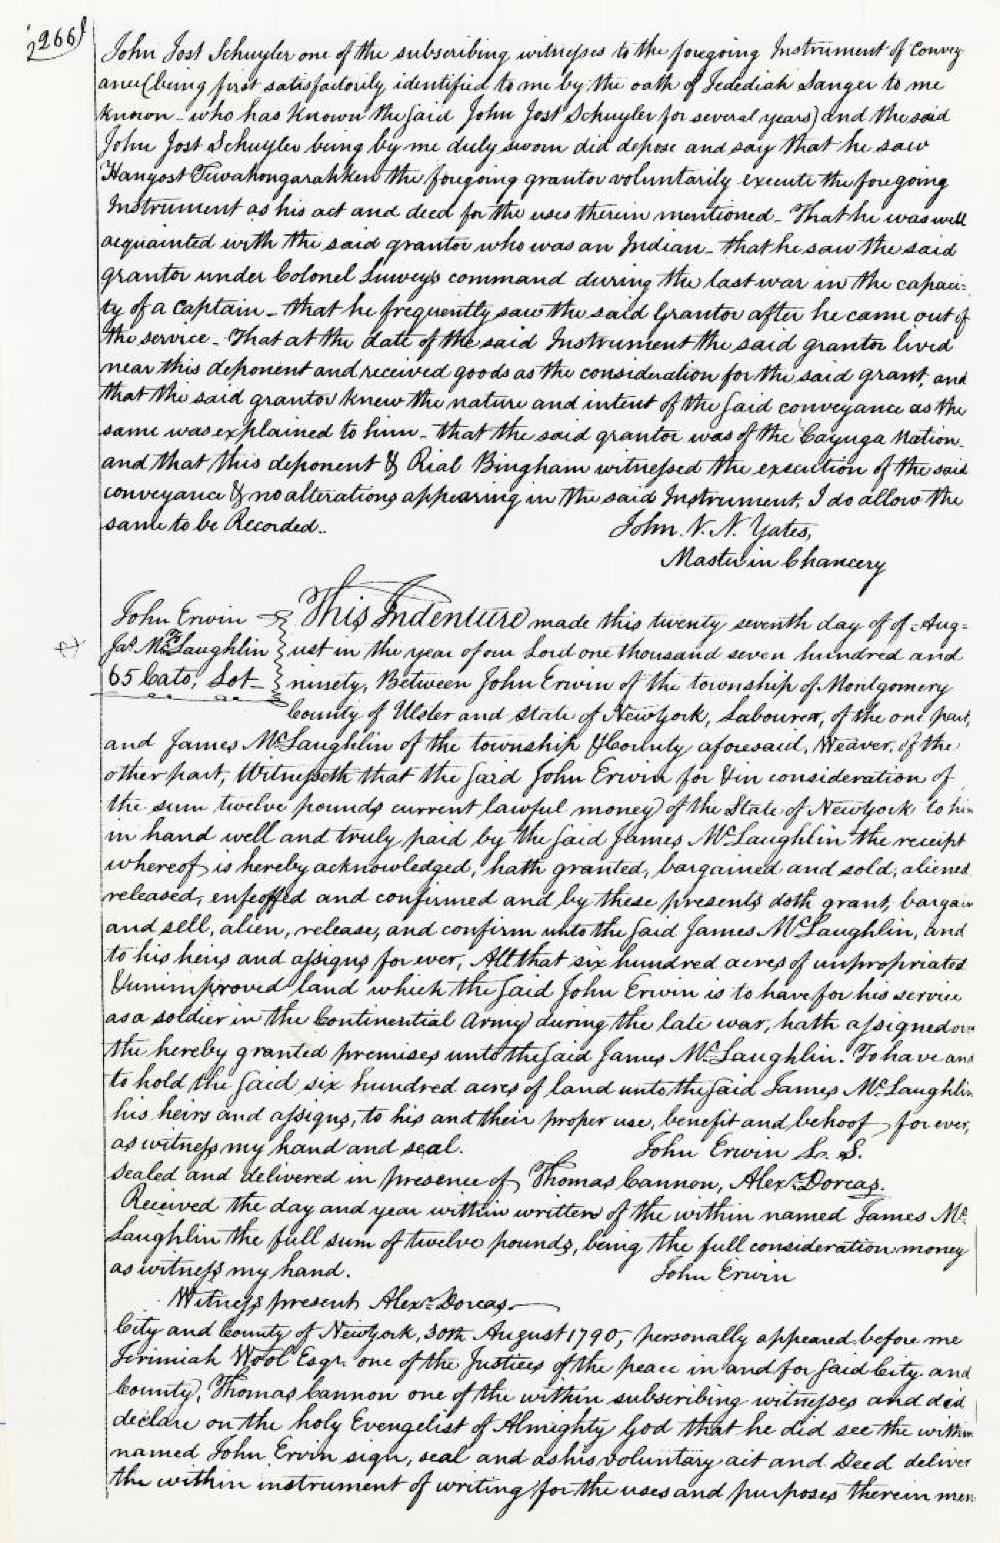 266
John Jost Schuyler one of the subscribing witnesses to the foregoing Instrument of Convey
ance (being first satisfactorily identified to me by the oath of Jedediah Sanger to me
known - who has known the said John Jost Schuyler for several years) and the said
John Jost Schuyler being by me duly sworn did depose and say that he saw
Hanyost Tewahongarahken the foregoing grantor voluntarily execute the foregoing
Instrument as his act and deed for the uses therein mentioned - That he was well
acquainted with the said grantor who was an Indian - that he saw the said
grantor under Colonel Luweys command during the last war in the capaci=
ty of a Captain - that he frequently saw the said Grantor after he came out of
the service - That at the date of the said Instrument the said grantor lived
near this deponent and received goods as the consideration for the said grant, and
that the said grantor knew the nature and intent of the said conveyance as the
same was explained to him - that the said grantor was of the Cayuga Nation
and that this deponent & Rial Bingham witnessed the execution of the said
conveyance & no alterations appearing in the said Instrument, I do allow the
same to be Recorded..
John V. N. Yates,
Master in Chancery
John Erwin
&
Jas. McLaughlin
65 Cato, Lot
This Indenture made this twenty seventh day of of Aug=
ust in the year of our Lord one thousand seven hundred and
ninety, Between John Erwin of the township of Montgomery
County of Ulster and State of New York, Labourer, of the one part,
and James McLaughlin of the township & County aforesaid, Weaver, of the
other part, Witnesseth that the said John Erwin for & in consideration of
the sum twelve pounds current lawful money of the State of New York to him
in hand well and truly paid by the said James McLaughlin the receipt
whereof is hereby acknowledged, hath granted, bargained and sold, aliened
released, enfeoffed and confirmed and by these presents doth grant, bargain
and sell, alien, release, and confirm unto the said James McLaughlin, and
to his heirs and assigns for ever, All that six hundred acres of unpropriated
& unimproved land which the said John Erwin is to have for his service
as a soldier in the Continential Army during the late war, hath assigned over
the hereby granted premises unto the said James McLaughlin. To have and
to hold the said six hundred acres of land unto the said James McLaughlin
his heirs and assigns, to his and their proper use, benefit and behoof for ever,
as witness my hand and seal.
John Erwin L. S.
Sealed and delivered in presence of Thomas Cannon, Alexr. Dorcas.
Received the day and year within written of the within named James Mc
Laughlin the full sum of twelve pounds, being the full consideration money
as witness my hand.
John Erwin
Witness present Alexr. Dorcas
City and County of New York, 30th August 1790, personally appeared before me
Jerimiah Wool Esqr. one of the Justices of the peace in and for said City and
County, Thomas Cannon one of the within subscribing witnesses and did
declare on the holy Evengelist of Almighty God that he did see the within
named John Ervin sign, seal and as his voluntary act and Deed deliver
the within instrument of writing for the uses and purposes therein men